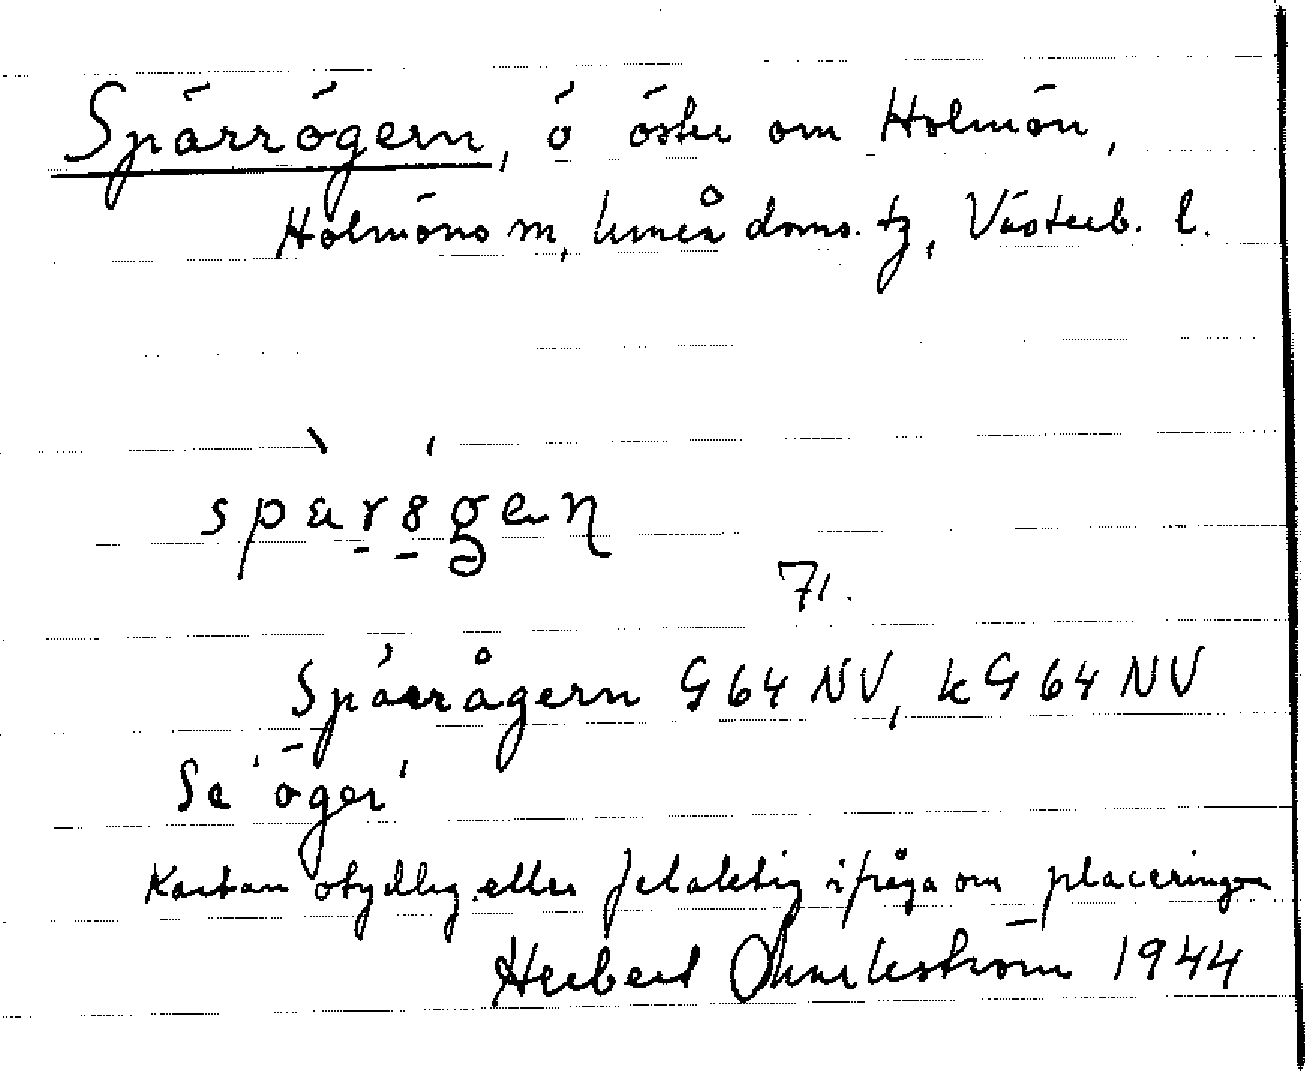 Spärrögern, ö öster om Holmön,
Holmöns sn, Umeå doms. tg, Västerb. l.
spɑrögen
71.
Spärrågern G 64 NV, k G 64 NV
Se 'öger'
Kartan otydlig eller felaktig ifråga om placeringen
Herbert 1944